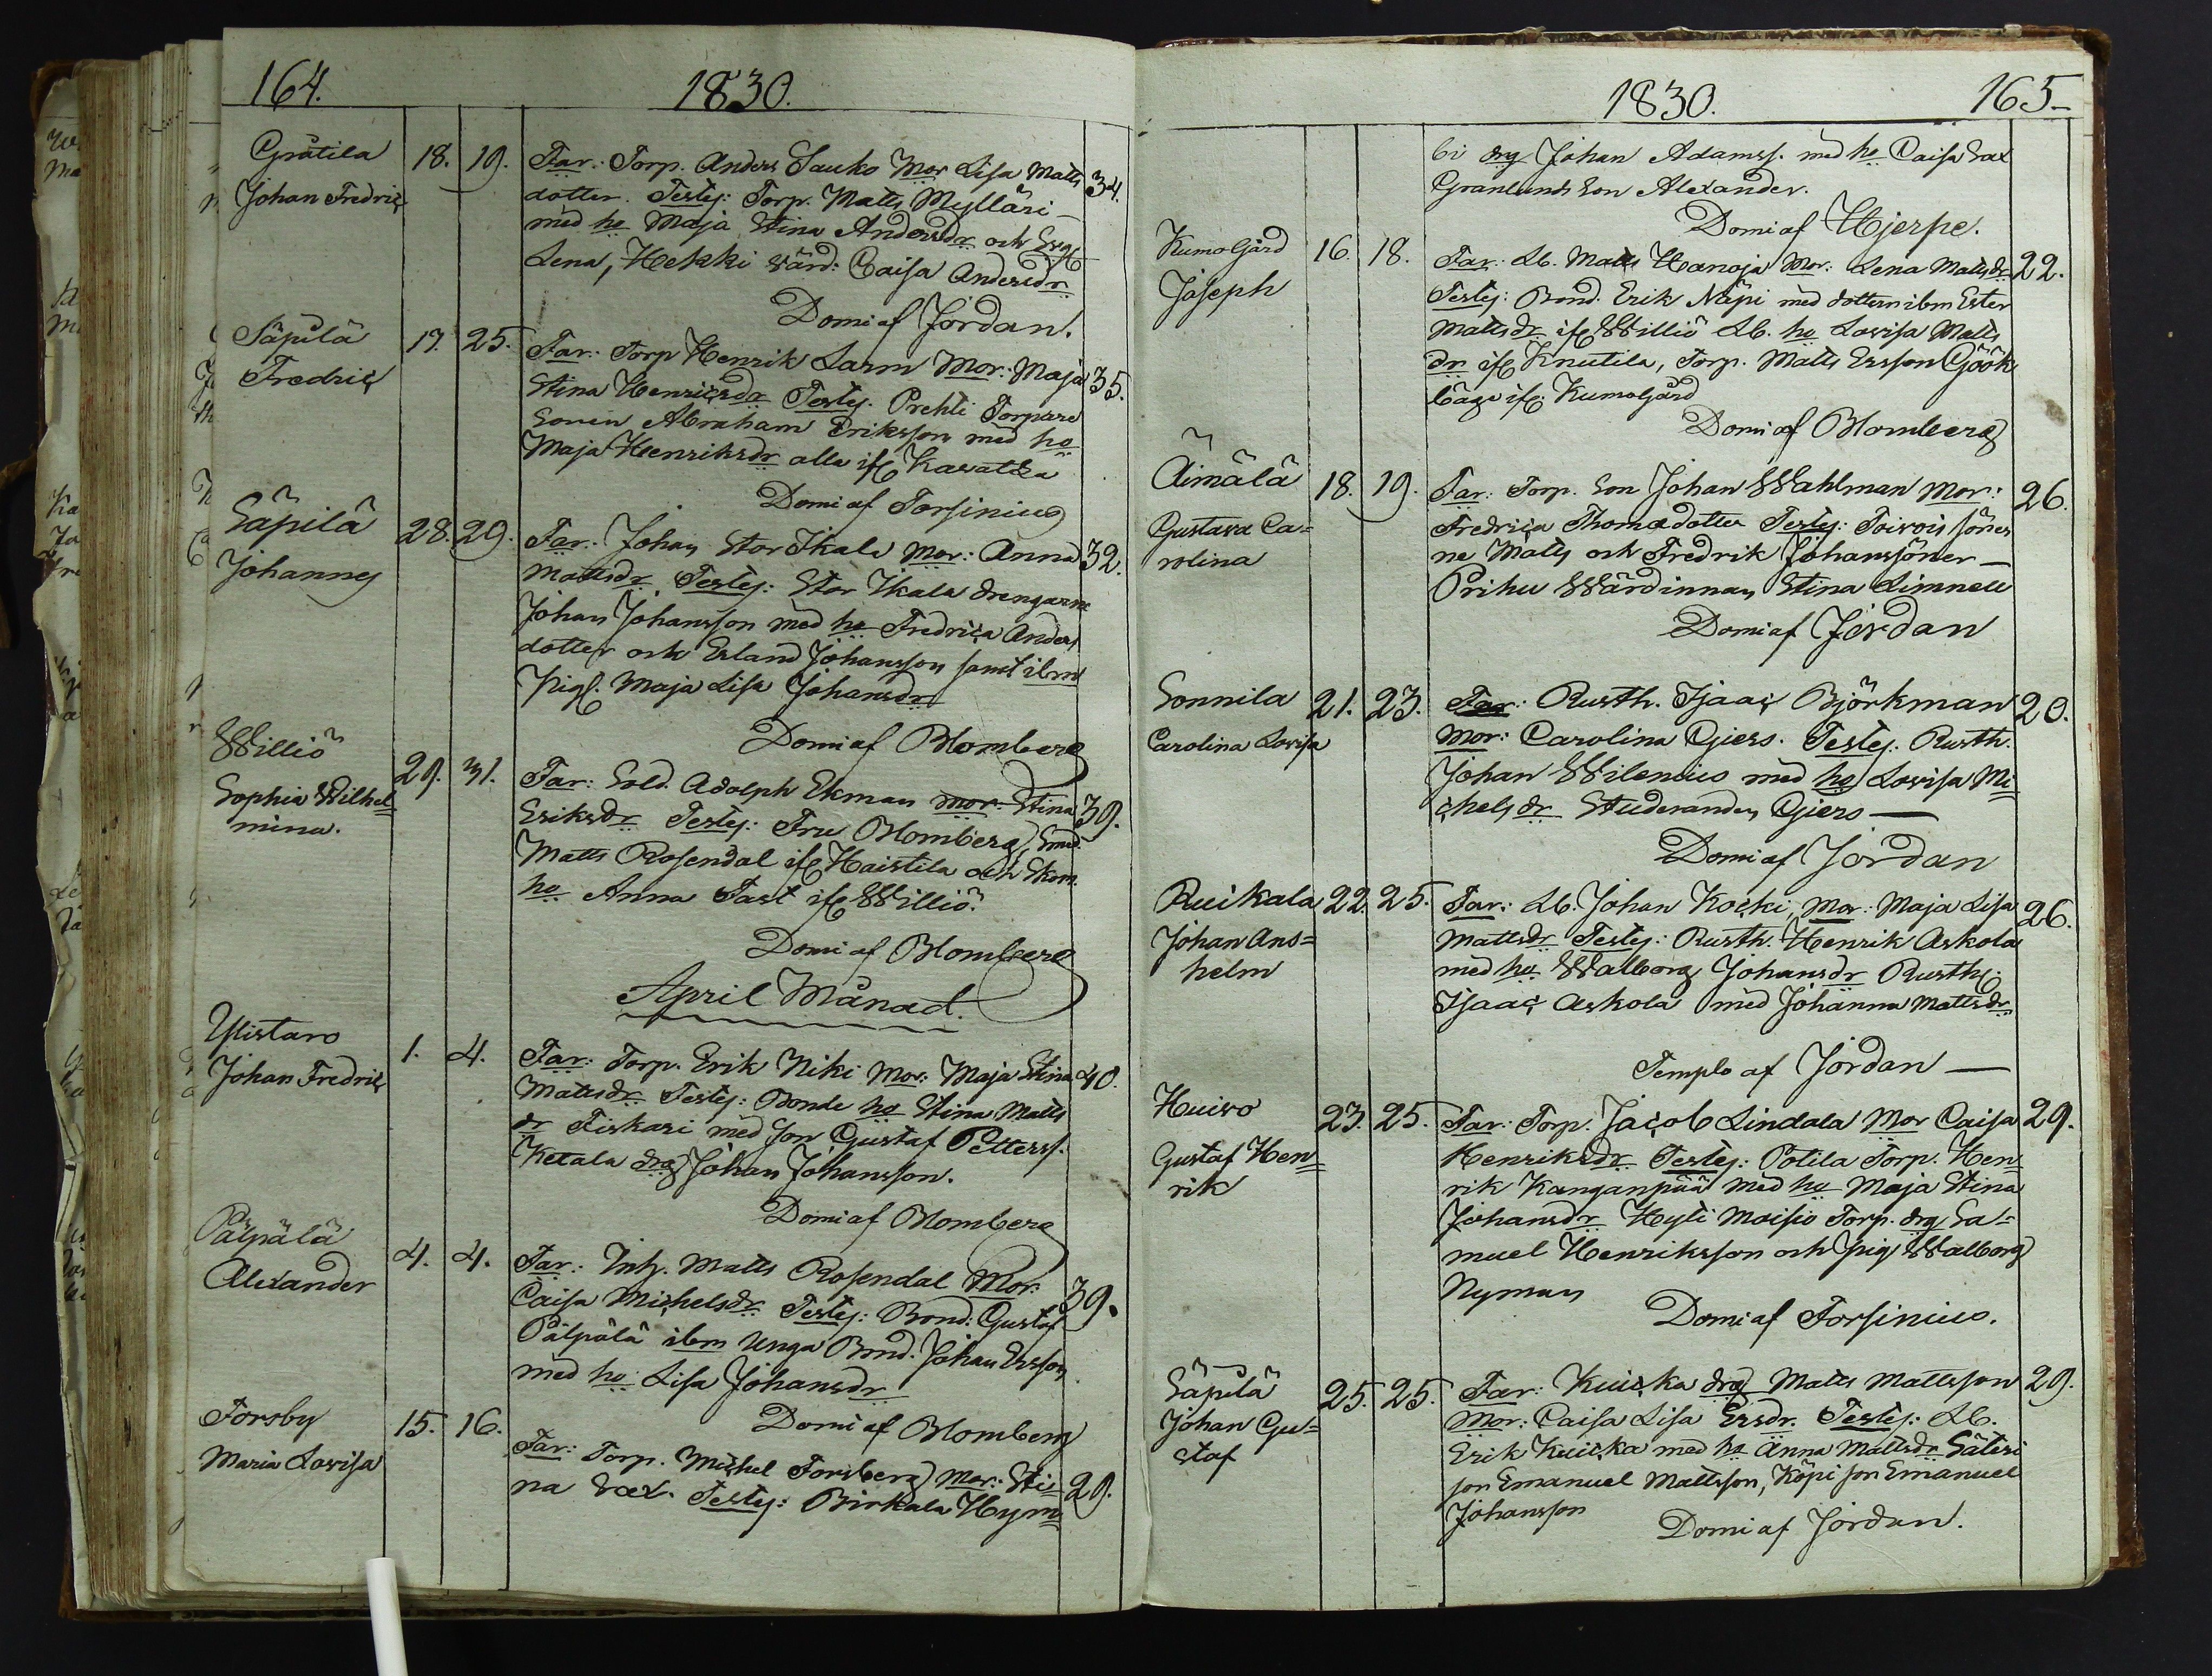 164.
1830.
Gråtila 18. 19. Far: Torp. Anders Sauko Mor Lisa Matts 34.
Johan Fredric dotter. Testes: Torp. Matts Mylläri
med ho Maja Stina Andersdr och
Lena, Hekki värd: Caisa Andersdr
Domi af Jordan.
Säpilä 19. 25. Far: Torp Henrik Larm Mor: Maja 35.
Fredric Stina Henricsdr Testes. Prehti Torpare
Sonen Abraham Eriksson med ho
Maja Henriksdr alla if Kavatka
Domi af Forsinius
Säpilä 28. 29. Far: Johan Stor Ikala Mor: Anna 32.
Johannes Mattsdr Testes: Stor Ikala drengarne
Johan Johansson med ho Fredrica Anders
dotter och Erland Johansson samt ibm
Pig. Maja Lisa Johansdr
Domi af Blomberg
Williö 29. 31. Far: Sold. Adolph Ekman Mor: Stina 39.
Sophia Wilhel= Eriksdr Testes: Fru Blomberg, Smed.
mina. Matts Rosendal if Haistila och
ho Anna Fast if Williö.
Domi af Blomberg
April Månad.
Ylistaro 1. 4. Far: Torp. Erik Niki Mor: Maja Stina 40.
Johan Fredric Mattsdr Testes: Bonde ho Stina Matts
dr Fiskari med son Gustaf Petterss.
Ketala drg Johan Johansson.
Domi af Blomberg
Pälpälä 4. 4. Far: Inh. Matts Rosendal Mor: 39.
Alexander Caisa Michelsdr Testes: Bond: Gustaf
Pälpälä ibm unga Bond. Johan Ersson
med ho Lisa Johansdr
Domi af Blomberg
Forsby 15. 16. Far: Torp. Michel Forsberg Mor: Sti= 29.
Maria Lovisa na Sax. Testes: Birkala Hyvn=
1830. 165
bi drg Johan Adamss. med ho Caisa Sax
Granlunds Son Alexander.
Domi af Hjerpe.
Kumogård 16. 18. Far: Lb. Matts Hanoja Mor: Lena Mattsdr 22.
Joseph Testes: Bond. Erik Näpi med dottern ibm Ester
Mattsdr if Williö Lb. ho Lovisa Matts
dr if Knutila, Torp. Matts Ersson Gjöök
båge if Kumogård
Domi af Blomberg
Äimälä 18. 19. Far: Torp. Son Johan Wahlman Mor: 26.
Gustava Ca= Fredrica Thomadotter Testes: Toivois söner
rolina ne Matts och Fredrik Johanssöner
Prihu Wärdinnan Stina Limnell
Domi af Jordan
Sonnila 21. 23. Far: Rusth. Isaac Björkman 20.
Carolina Lovisa Mor: Carolina Gjers. Testes: Rusth.
Johan Wilenius med ho Lovisa Mi=
chelsdr Studeranden Gjers
Domi af Jordan
Ruikala 22. 25. Far: Lb. Johan Kocki, Mor: Maja Lisa 26.
Johan Ans= Mattsdr Testes: Rusth. Henrik Askola
helm med ho Walborg Johansdr Rusth.
Isaac Askola med Johanna Mattsdr
Templo af Jordan
Huivo 23. 25. Far: Torp. Jacob Lindala Mor Caisa 29.
Gustaf Hen= Henriksdr Testes: Potila Torp. Hen=
rik rik Kanganpää med ho Maja Stina
Johansdr Hyti Moisio Torp. drg Sa=
muel Henriksson och pig Walborg
Nyman
Domi af Forsinius.
Säpilä 25. 25. Far: Kuicka drg Matts Mattsson 29.
Johan Gu= Mor: Caisa Lisa Ersdr. Testes: Lb.
staf Erik Kuicka med ho Anna Mattsdr Säteri
son Emanuel Mattsson, Köpi son Emanuel
Johansson
Domi af Jordan.